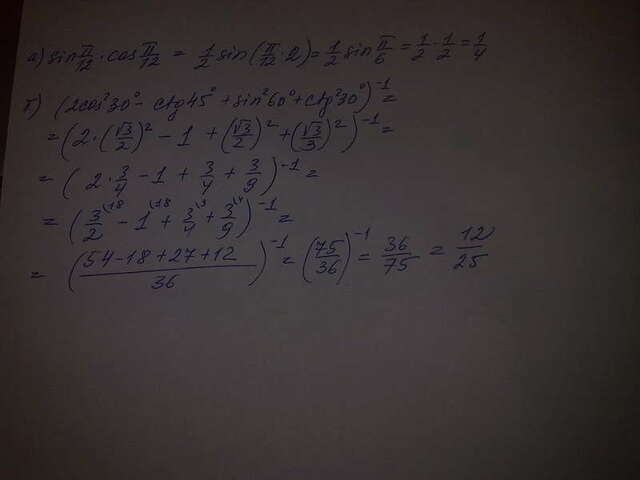 а) sin π/12 · cos π/12 = 1/2 sin(π/12 · 2) = 1/2 sin π/6 = 1/2 · 1/2 = 1/4
б) (2cos²30° - ctg45° + sin²60° + ctg²30°)⁻¹ =
= (2·(√3/2)² - 1 + (√3/2)² + (√3/3)²)⁻¹ =
= (2·3/4 - 1 + 3/4 + 3/9)⁻¹ =
= (3/2\18 - 1\18 + 3/4\9 + 3/9\4)⁻¹ =
= ((54-18+27+12)/36)⁻¹ = (75/36)⁻¹ = 36/75 = 12/25